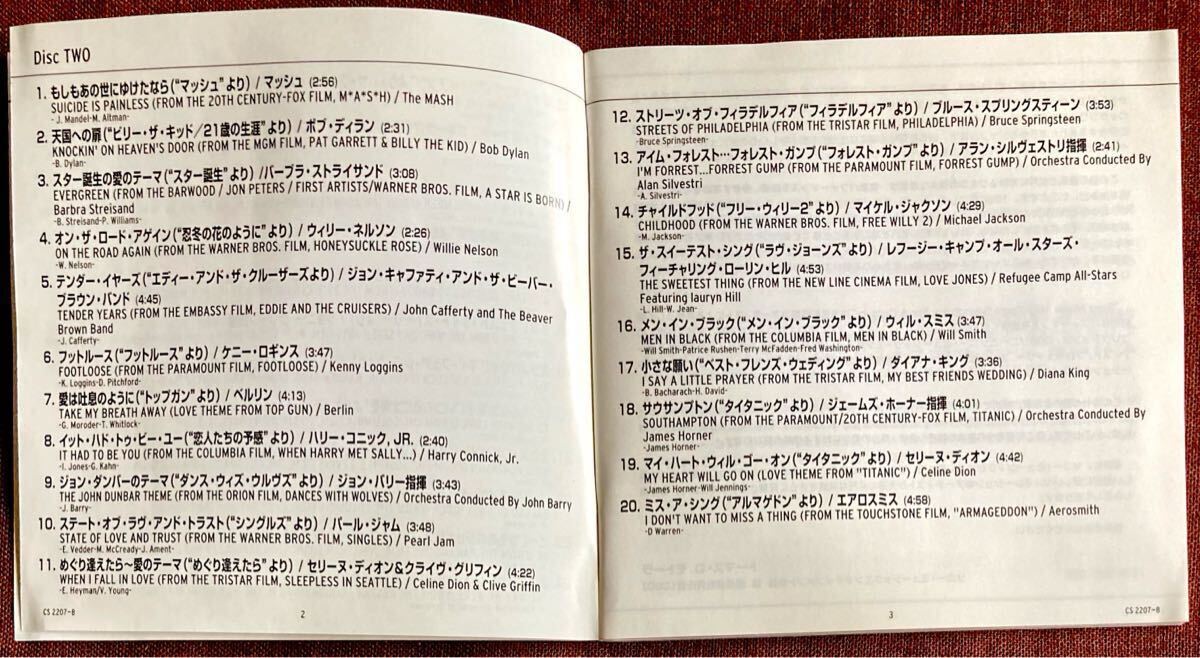 Disc TWO
1. もしもあの世にゆけたなら(“マッシュ”より) / マッシュ (2:56)
SUICIDE IS PAINLESS (FROM THE 20TH CENTURY-FOX FILM, M*A*S*H) / The MASH
- J. Mandel-M. Altman-
2. 天国への扉(“ビリー・ザ・キッド/21歳の生涯”より) / ボブ・ディラン (2:31)
KNOCKIN' ON HEAVEN'S DOOR (FROM THE MGM FILM, PAT GARRETT & BILLY THE KID) / Bob Dylan
-B. Dylan-
3. スター誕生の愛のテーマ(“スター誕生”より) /バーブラ・ストライサンド (3:08)
EVERGREEN (FROM THE BARWOOD / JON PETERS / FIRST ARTISTS/WARNER BROS. FILM, A STAR IS BORN) /
Barbra Streisand
-B. Streisand-P. Williams-
4. オン・ザ・ロード・アゲイン(“忍冬の花のように”より) / ウィリー・ネルソン (2:26)
ON THE ROAD AGAIN (FROM THE WARNER BROS. FILM, HONEYSUCKLE ROSE) / Willie Nelson
-W. Nelson-
5. テンダー・イヤーズ(“エディー・アンド・ザ・クルーザーズより) / ジョン・キャファティ・アンド・ザ・ビーバー・
ブラウン・バンド (4:45)
TENDER YEARS (FROM THE EMBASSY FILM, EDDIE AND THE CRUISERS) / John Cafferty and The Beaver
Brown Band
-J. Cafferty-
6. フットルース(“フットルース”より) / ケニー・ロギンス (3:47)
FOOTLOOSE (FROM THE PARAMOUNT FILM, FOOTLOOSE) / Kenny Loggins
-K. Loggins-D. Pitchford-
7. 愛は吐息のように(“トップガン”より) / ベルリン (4:13)
TAKE MY BREATH AWAY (LOVE THEME FROM TOP GUN) / Berlin
-G. Moroder-T. Whitlock-
8. イット・ハド・トゥ・ビー・ユー(“恋人たちの予感”より) / ハリー・コニック, JR. (2:40)
IT HAD TO BE YOU (FROM THE COLUMBIA FILM, WHEN HARRY MET SALLY...) / Harry Connick, Jr.
-I. Jones-G. Kahn-
9. ジョン・ダンバーのテーマ(“ダンス・ウィズ・ウルヴズ”より) / ジョン・バリー指揮 (3:43)
THE JOHN DUNBAR THEME (FROM THE ORION FILM, DANCES WITH WOLVES) / Orchestra Conducted By John Barry
-J. Barry-
10. ステート・オブ・ラヴ・アンド・トラスト(“シングルズ”より) / パール・ジャム (3:48)
STATE OF LOVE AND TRUST (FROM THE WARNER BROS. FILM, SINGLES) / Pearl Jam
-E. Vedder-M. McCready-J. Ament-
11. めぐり逢えたら〜愛のテーマ(“めぐり逢えたら”より) / セリーヌ・ディオン&クライヴ・グリフィン (4:22)
WHEN I FALL IN LOVE (FROM THE TRISTAR FILM, SLEEPLESS IN SEATTLE) / Celine Dion & Clive Griffin
-E. Heyman/V. Young-
CS 2207-8
2
12. ストリーツ・オブ・フィラデルフィア(“フィラデルフィア”より) / ブルース・スプリングスティーン (3:53)
STREETS OF PHILADELPHIA (FROM THE TRISTAR FILM, PHILADELPHIA) / Bruce Springsteen
-Bruce Springsteen-
13. アイム・フォレスト…フォレスト・ガンプ(“フォレスト・ガンプ”より) / アラン・シルヴェストリ指揮 (2:41)
I'M FORREST...FORREST GUMP (FROM THE PARAMOUNT FILM, FORREST GUMP) / Orchestra Conducted By
Alan Silvestri
-A. Silvestri-
14. チャイルドフッド(“フリー・ウィリー2”より) / マイケル・ジャクソン (4:29)
CHILDHOOD (FROM THE WARNER BROS. FILM, FREE WILLY 2) / Michael Jackson
-M. Jackson-
15. ザ・スイーテスト・シング(“ラヴ・ジョーンズ”より) / レフージー・キャンプ・オール・スターズ・
フィーチャリング・ローリン・ヒル (4:53)
THE SWEETEST THING (FROM THE NEW LINE CINEMA FILM, LOVE JONES) / Refugee Camp All-Stars
Featuring lauryn Hill
-L. Hill-W. Jean-
16. メン・イン・ブラック(“メン・イン・ブラック”より) / ウィル・スミス (3:47)
MEN IN BLACK (FROM THE COLUMBIA FILM, MEN IN BLACK) / Will Smith
-Will Smith-Patrice Rushen-Terry McFadden-Fred Washington-
17. 小さな願い(“ベスト・フレンズ・ウェディング”より) / ダイアナ・キング (3:36)
I SAY A LITTLE PRAYER (FROM THE TRISTAR FILM, MY BEST FRIENDS WEDDING) / Diana King
-B. Bacharach-H. David-
18. サウサンプトン(“タイタニック”より) / ジェームズ・ホーナー指揮 (4:01)
SOUTHAMPTON (FROM THE PARAMOUNT/20TH CENTURY-FOX FILM, TITANIC) / Orchestra Conducted By
James Horner
-James Horner-
19. マイ・ハート・ウィル・ゴー・オン(“タイタニック”より) / セリーヌ・ディオン (4:42)
MY HEART WILL GO ON (LOVE THEME FROM "TITANIC") / Celine Dion
-James Horner-Will Jennings-
20. ミス・ア・シング(“アルマゲドン”より) / エアロスミス (4:58)
I DON'T WANT TO MISS A THING (FROM THE TOUCHSTONE FILM, "ARMAGEDDON") / Aerosmith
-D Warren-
3
CS 2207-8